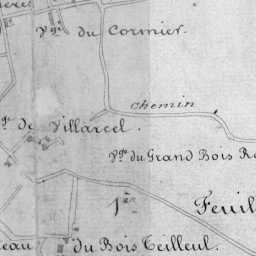 Vge du Cormier.
Chemin
de Villarcel.
Vge du Grand Bois Re
1re
Feuil
eau
du Bois Teilleul.